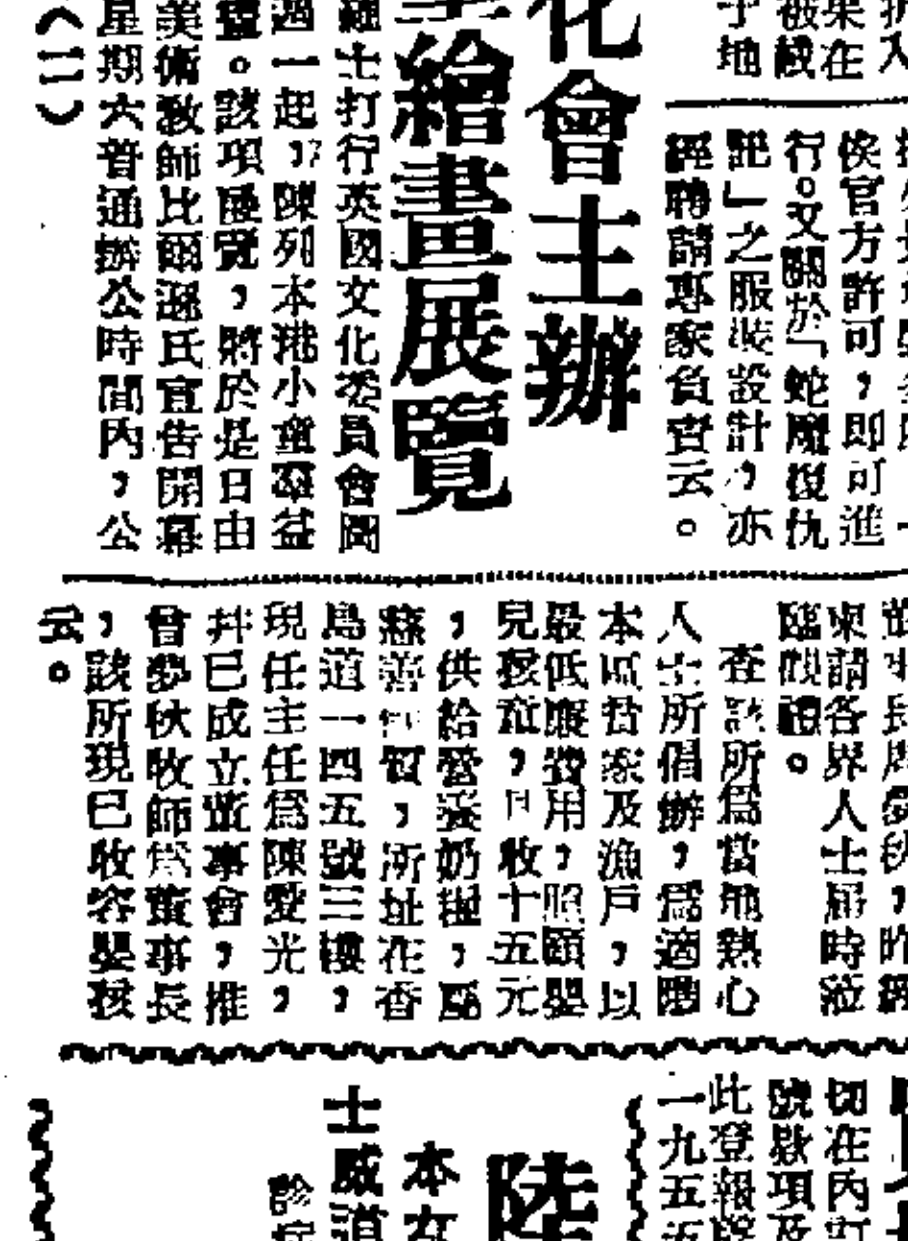 折入
果在
被
于地
侯官方許可，即可進
行。又關於「蛇魔復仇
記」之服裝設計，亦
經聘請專家負責云。
化會主辦
繪畫展覽
打行英國文化委員會
一起，陳列本港小童羣益
。該項展覽，將於是日由
美術教師比爾遜氏宣告開幕
星期六普通辦公時間內，公
（二）
柬請各界人士屆時蒞
臨觀禮。
查該所為當地熱心
人士所倡辦，為適應
本區貧家及漁戶，以
最低廉費用，照顧嬰
兒孩童，月收十五元
，供給營養奶糧，屬
慈善性質，所址在香
島道一四五號三樓，
現任主任為陳愛光，
幷已成立董事會，推
曾夢秋牧師為董事長
，該所現已收容嬰孩
云。
切在內
號欵項及
此登報
一九五
陸
本女
士威道
診